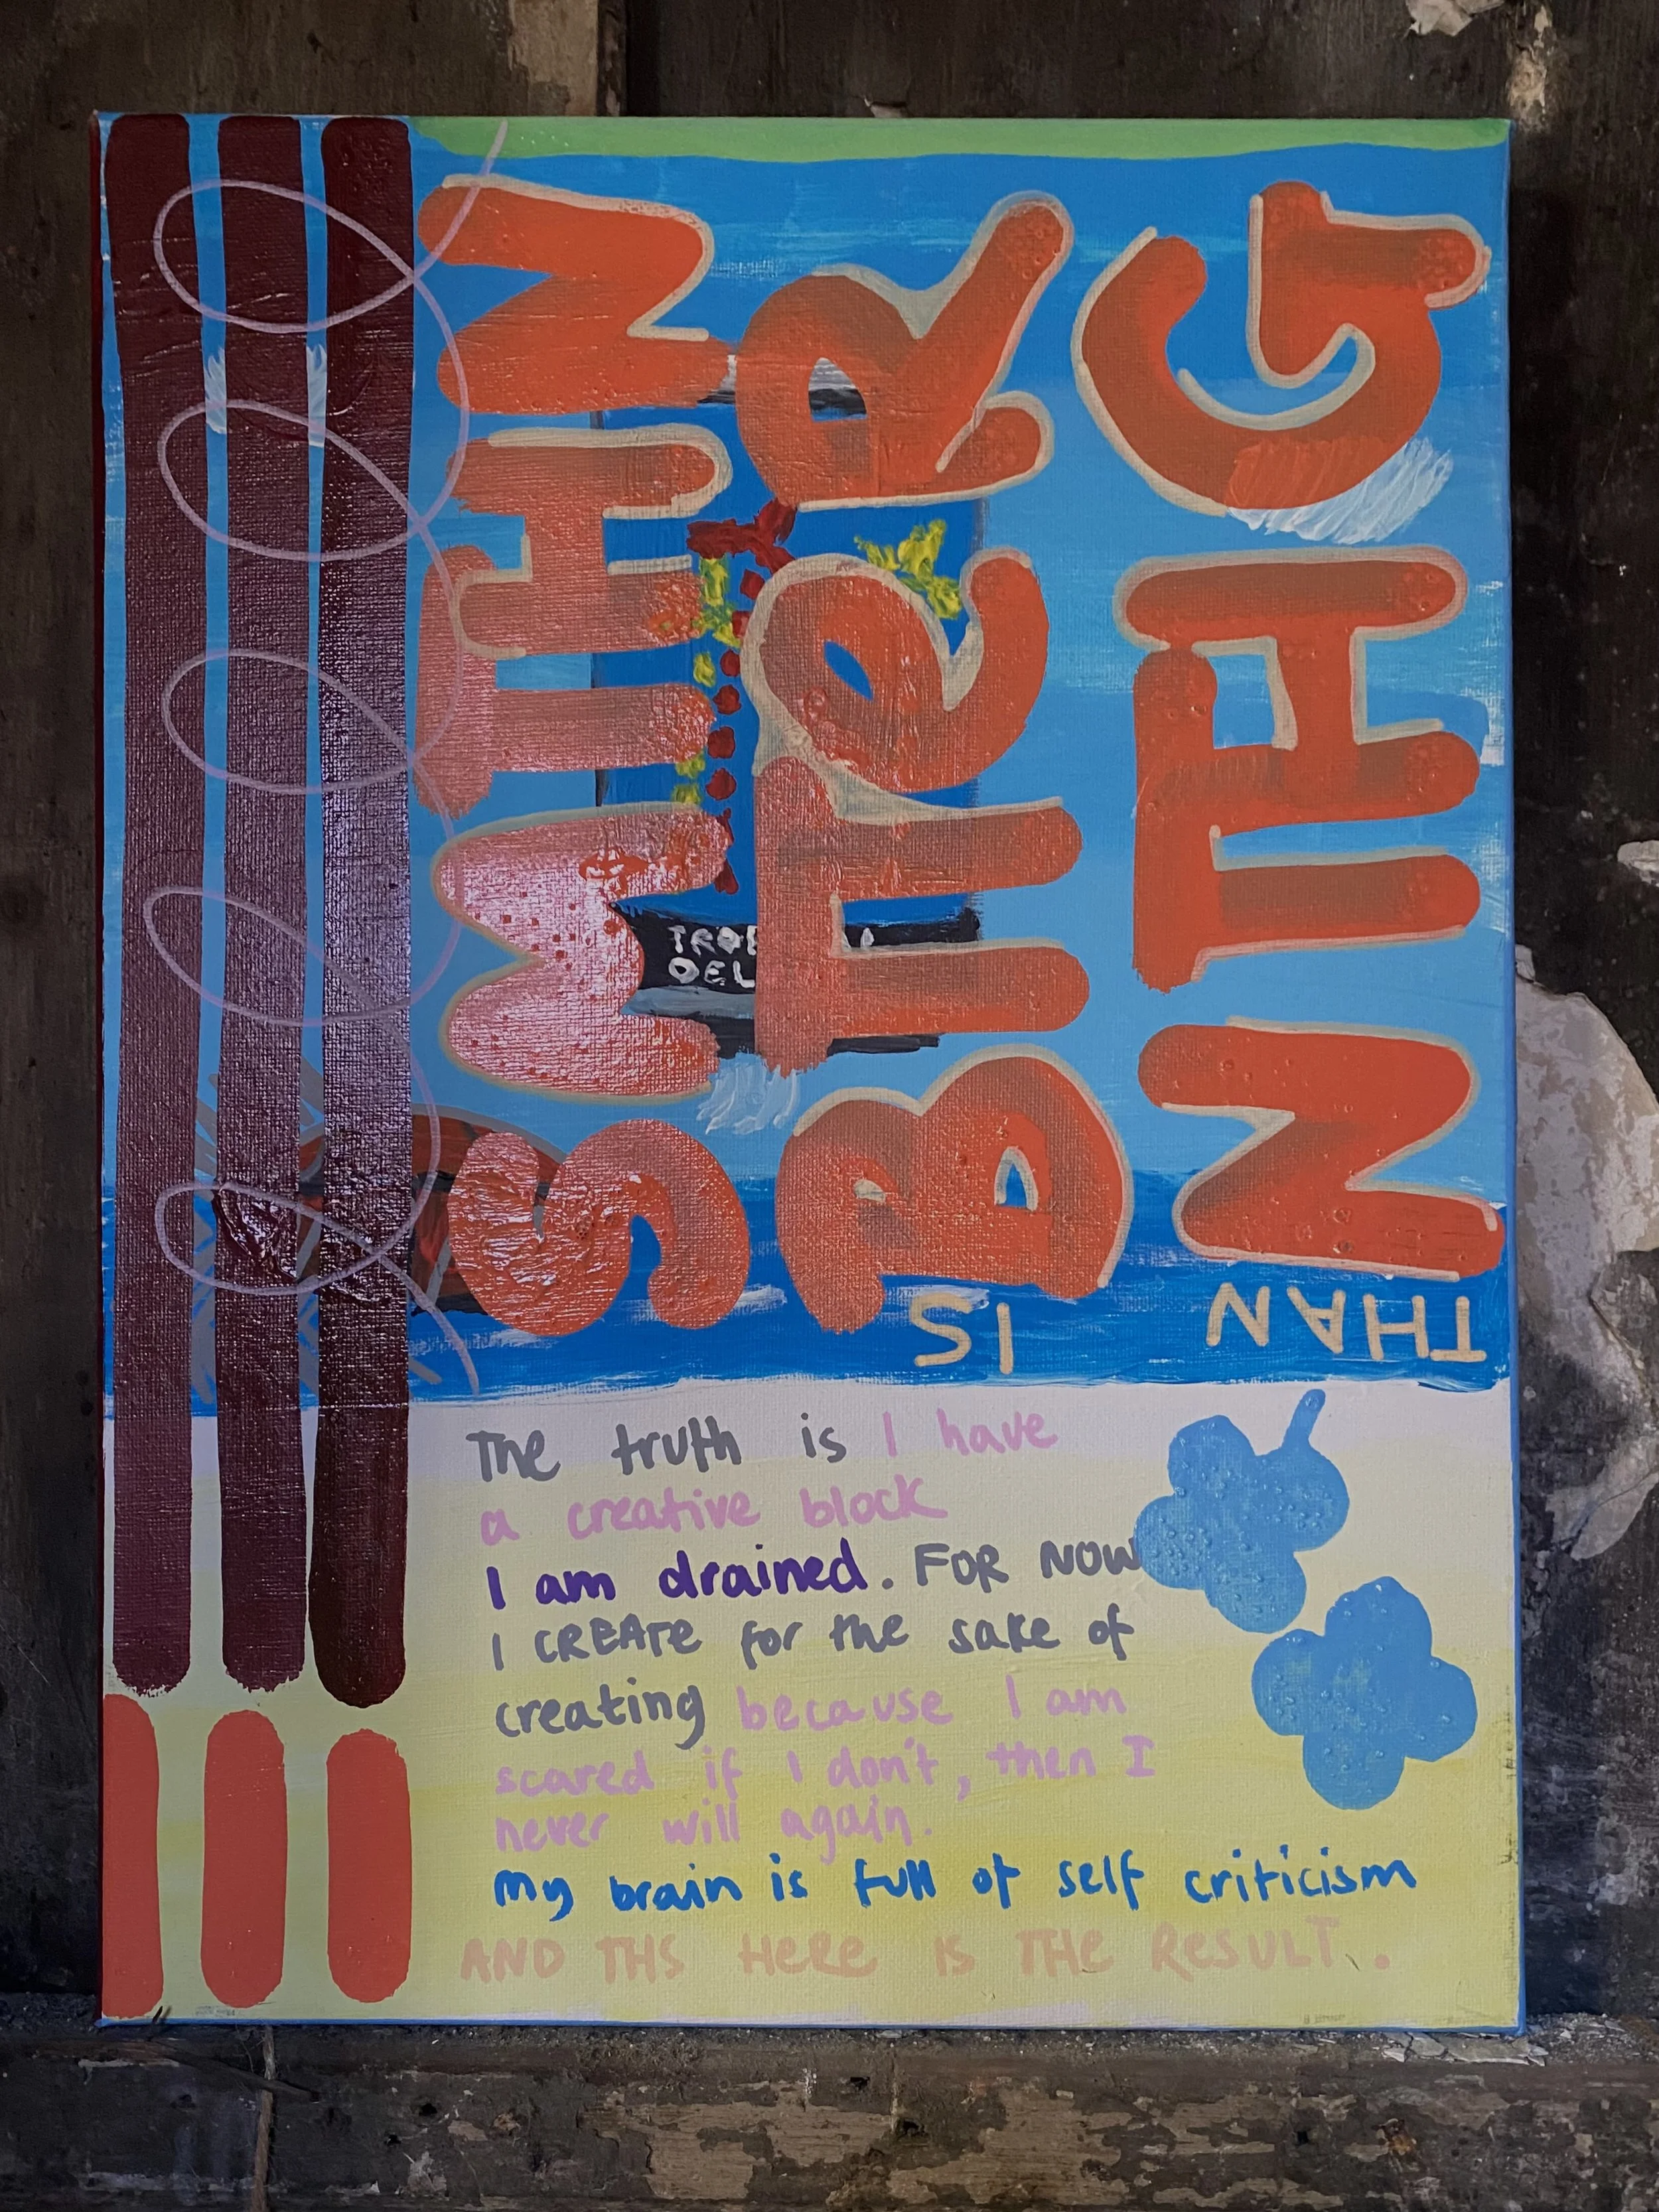 SMTHN
IS
BTTeR
THAN
NTHG
TRO
DEL
The truth is I have
a creative block
I am drained. FOR NOW
I CREATe for the sake of
creating because I am
scared if I don't, then I
never will again.
My brain is full of self criticism
AND THS HeRe IS THe ReSULT.